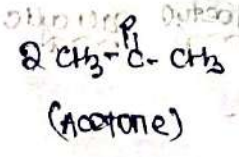 O
2 CH3-C-CH3
(Acetone)